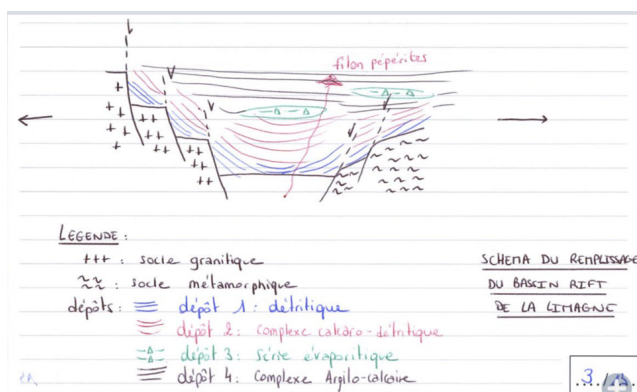 filon pépérites
LEGENDE :
+++ : socle granitique
~~ : socle métamorphique
dépôts :
dépôt 1 : détritique
dépôt 2 : Complexe calcaro-détritique
dépôt 3 : Série évaporitique
dépôt 4 : Complexe Argilo-calcaire
SCHEMA DU REMPLISSAGE
DU BASSIN RIFT
DE LA LIMAGNE
3